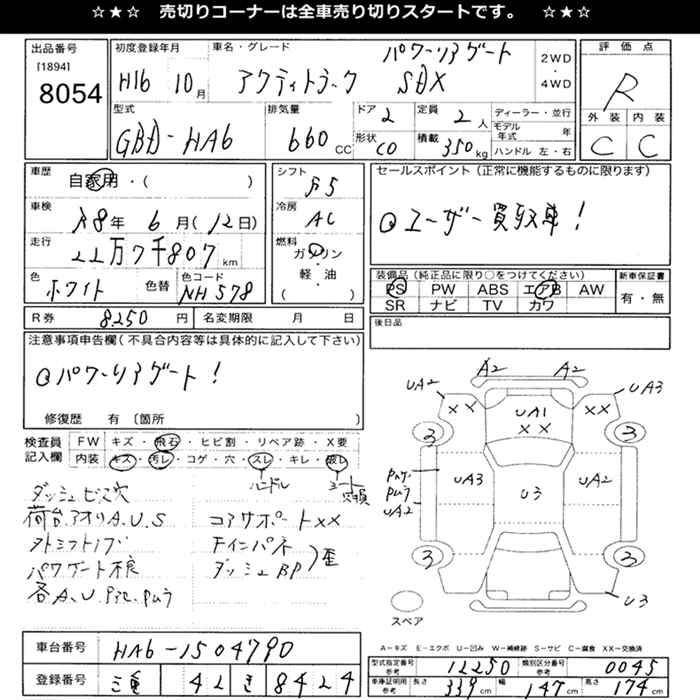 ☆★☆ 売切りコーナーは全車売り切りスタートです。 ☆★☆
出品番号
[1894]
8054
初度登録年月
H16 10月
車名・グレード
パワーリアゲート
アクティトラック SDX
2WD
・
4WD
評価点
R
外装 内装
C C
型式
GBD-HA6
排気量
660 CC
ドア 2
形状 CO
定員 2人
積載 350kg
ディーラー・並行
モデル年式 年
ハンドル 左・右
車歴
自家用・( )
車検
R8年 6月(12日)
走行
22万7千807 km
色
ホワイト
色替
色コード
NH578
シフト
F5
冷房
AC
燃料
ガソリン
・
軽・油
( )
セールスポイント(正常に機能するものに限ります)
◎ユーザー買取車!
装備品(純正品に限り○をつけてください)
PS PW ABS エアB AW
SR ナビ TV カワ
新車保証書
有・無
R券 8250円
名変期限 月 日
後日品
注意事項申告欄(不具合内容等は具体的に記入して下さい)
◎パワーリアゲート!
修復歴 有〔箇所 〕
検査員
記入欄
FW キズ・飛石・ヒビ割・リペア跡・X要
内装 キズ・汚レ・コゲ・穴・スレ・キレ・破レ
ハンドル シート
ダッシュビス穴
荷台、アオリA.U.S
パワゲート不良
各A.U.
コアサポートXX
Fインパネ
ダッシュBP
歪
A2 A2
UA2 UA3
XX XX
UA1
XX
3 3
UA3 U3 UA2
UA2
3 3
U3
スペア
A-キズ E-エクボ U-凹み W-補修跡 S-サビ C-腐食 XX-交換済
車台番号
HA6-1504790
登録番号
三重 42 き 8424
型式指定番号
参考
12250
類別区分番号
参考
0045
車庫証明用
参考
長さ 339cm 幅 147cm 高さ 174cm